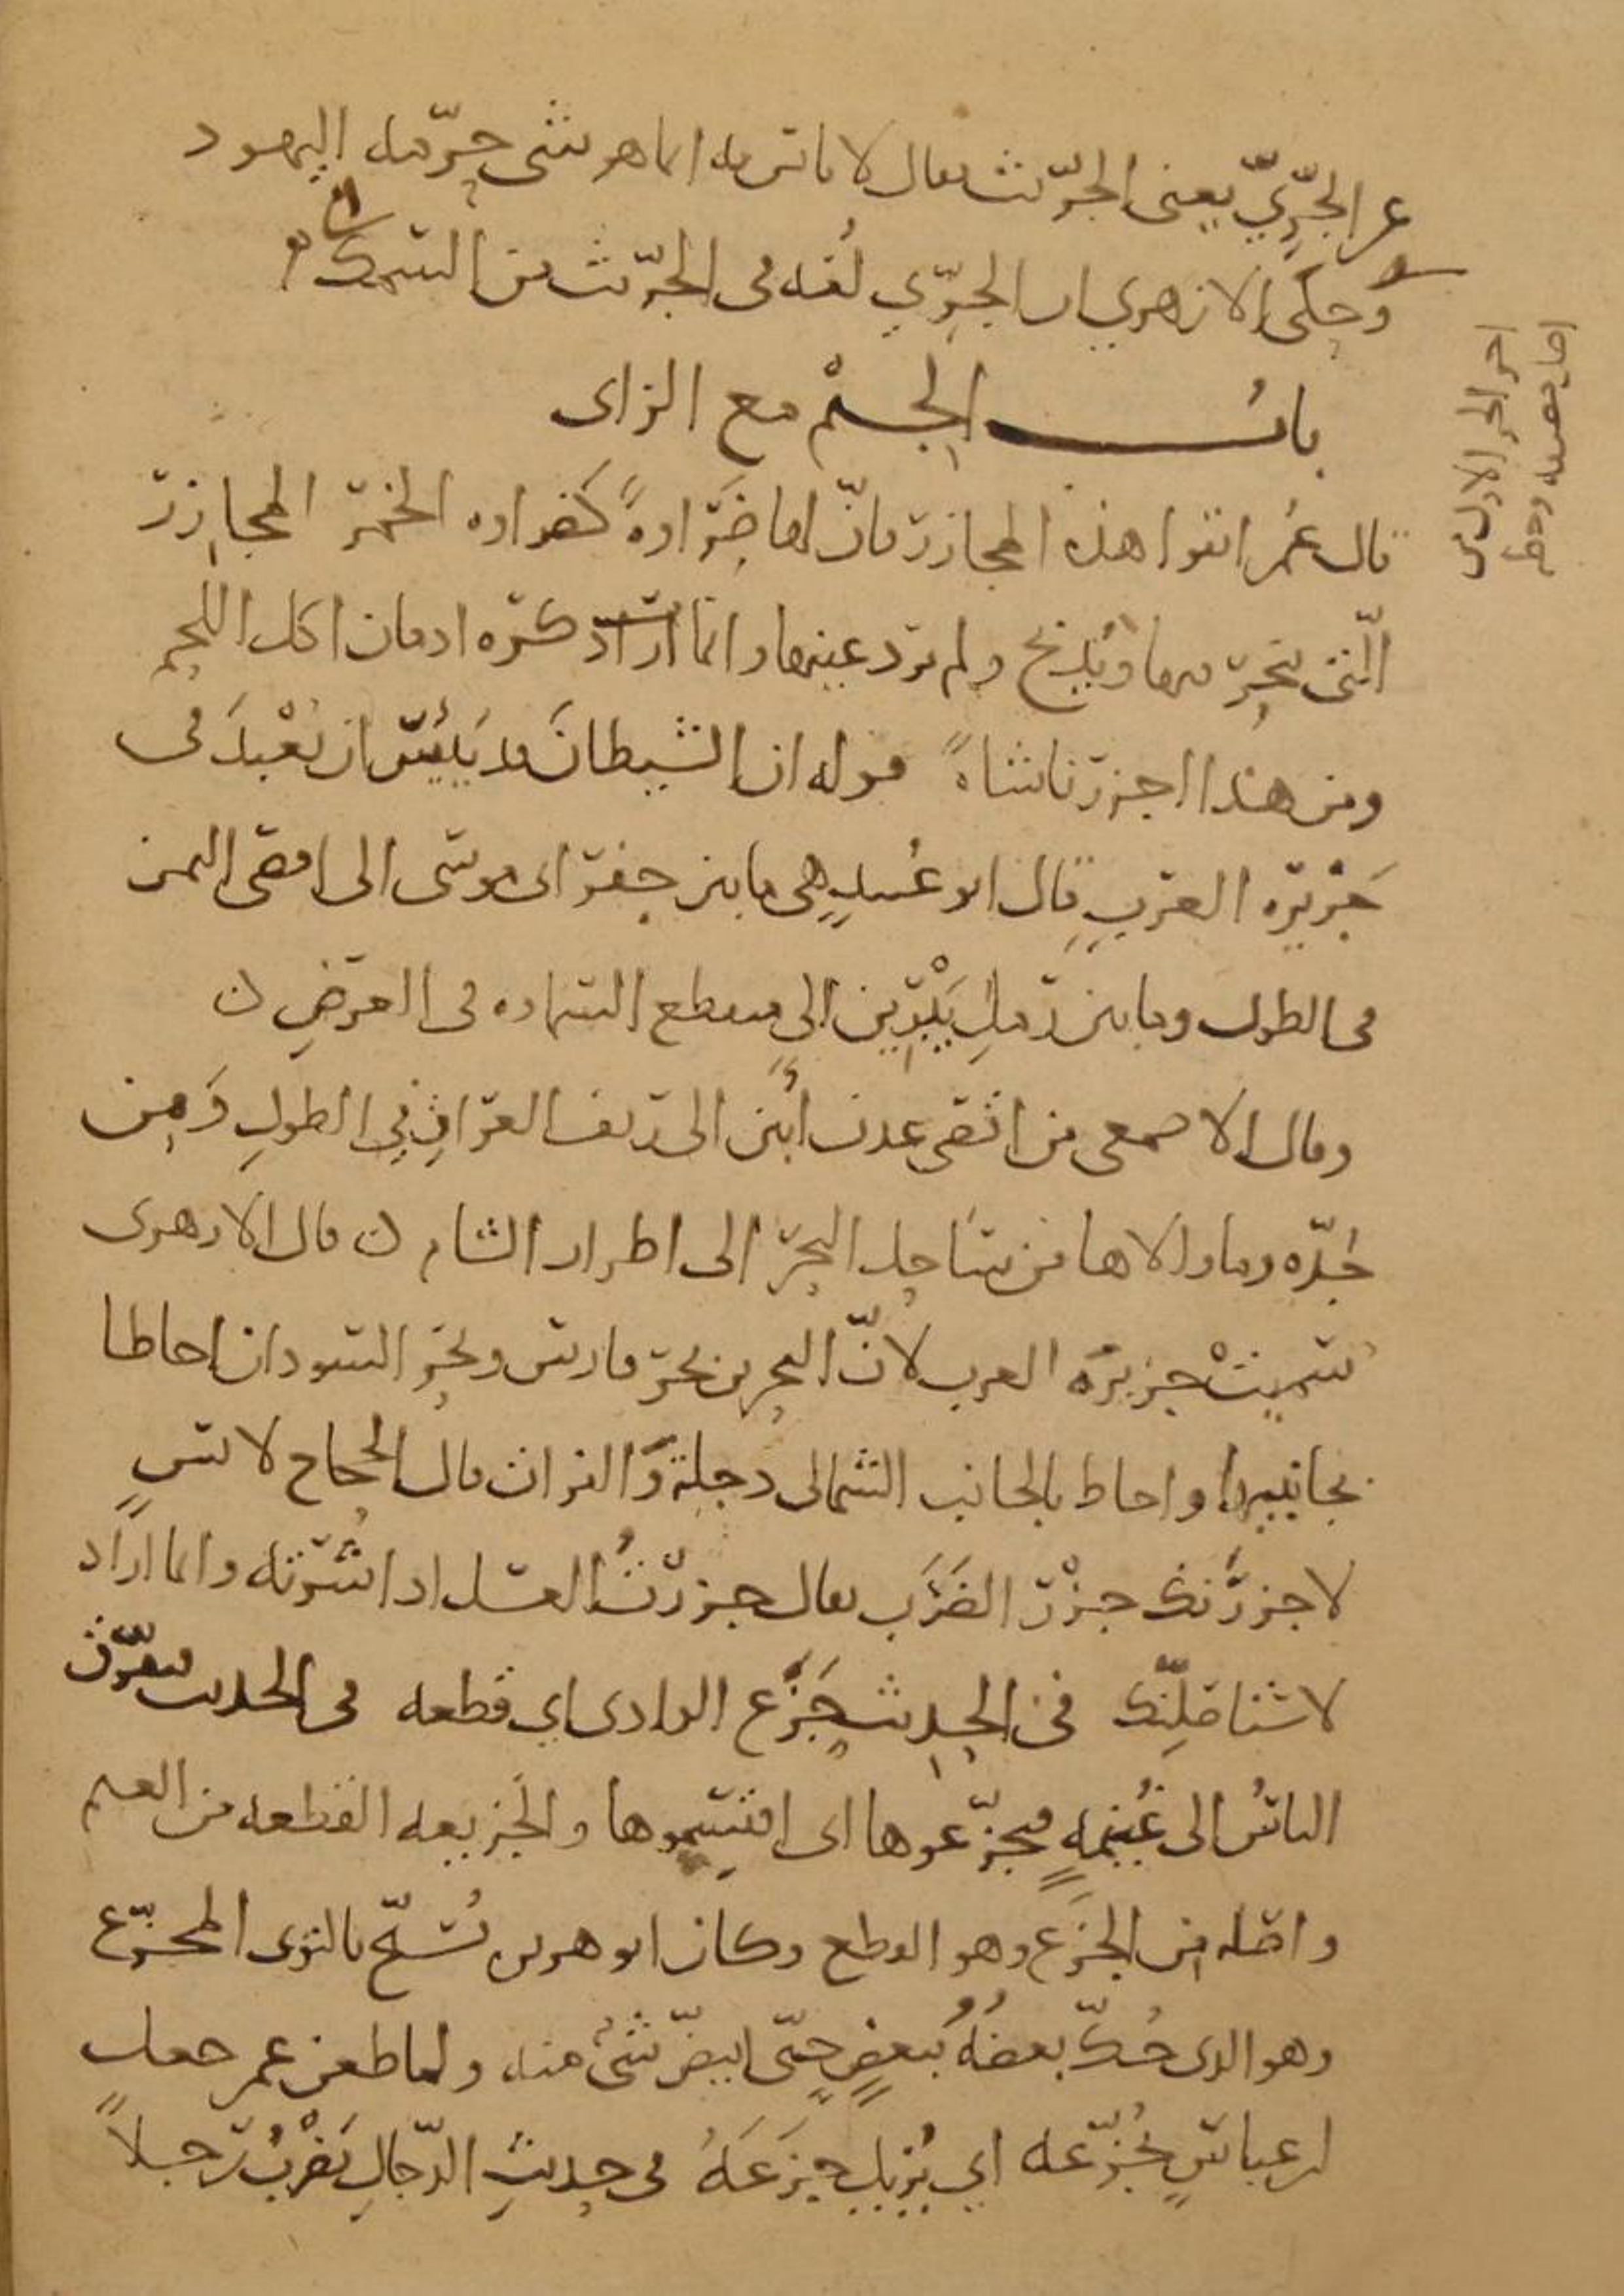 عن الجري يعني الجريث فقال لا باس به انما هو شي حرمه اليهود
وحكى الازهري ان الجري لغه في الجريث من السمك
باب الجيم مع الزاى
قال عمر اتقوا هذه المجازر فان لها ضراوة كضراوه الخمر المجازر
التي ينحر فيها ويذبح ولم يرد عينها وانما اراد كره ادمان اكل اللحم
ومن هذا اجزرنا شاة قوله ان الشيطان قد يئس ان يعبد في
جزيره العرب قال ابو عبيد هي ما بين حفر ابي موسى الى اقصى اليمن
في الطول وما بين رمل يبرين الى منقطع السماوه في العرض
وقال الاصمعي من اقصى عدن ابين الى ريف العراق في الطول ومن
جده وما والاها من ساحل البحر الى اطرار الشام قال الازهرى
سميت جزيرة العرب لان البحرين بحر فارس وبحر السودان احاطا
بجانبيها واحاط بالجانب الشمالي دجلة والفرات قال الحجاج لانس
لاجزرنك جزر الضرب يقال جزرت العسل اذا شرته وانما اراد
لاستاصلنك في الحديث جزع الوادى اي قطعه في الحديث فتفرق
الناس الى غنيمة فتجزعوها اى اقتسموها والجزيعه القطعه من الغنم
واصله من الجزع وهو القطع وكان ابو هريره يسبح بالنوى المجزع
وهو الذى حك بعضه ببعض حتى ابيض شئ منه ولما طعن عمر جعل
ابن عباس يجزعه اي يزيل جزعه في حديث الدجال يضرب رجلا